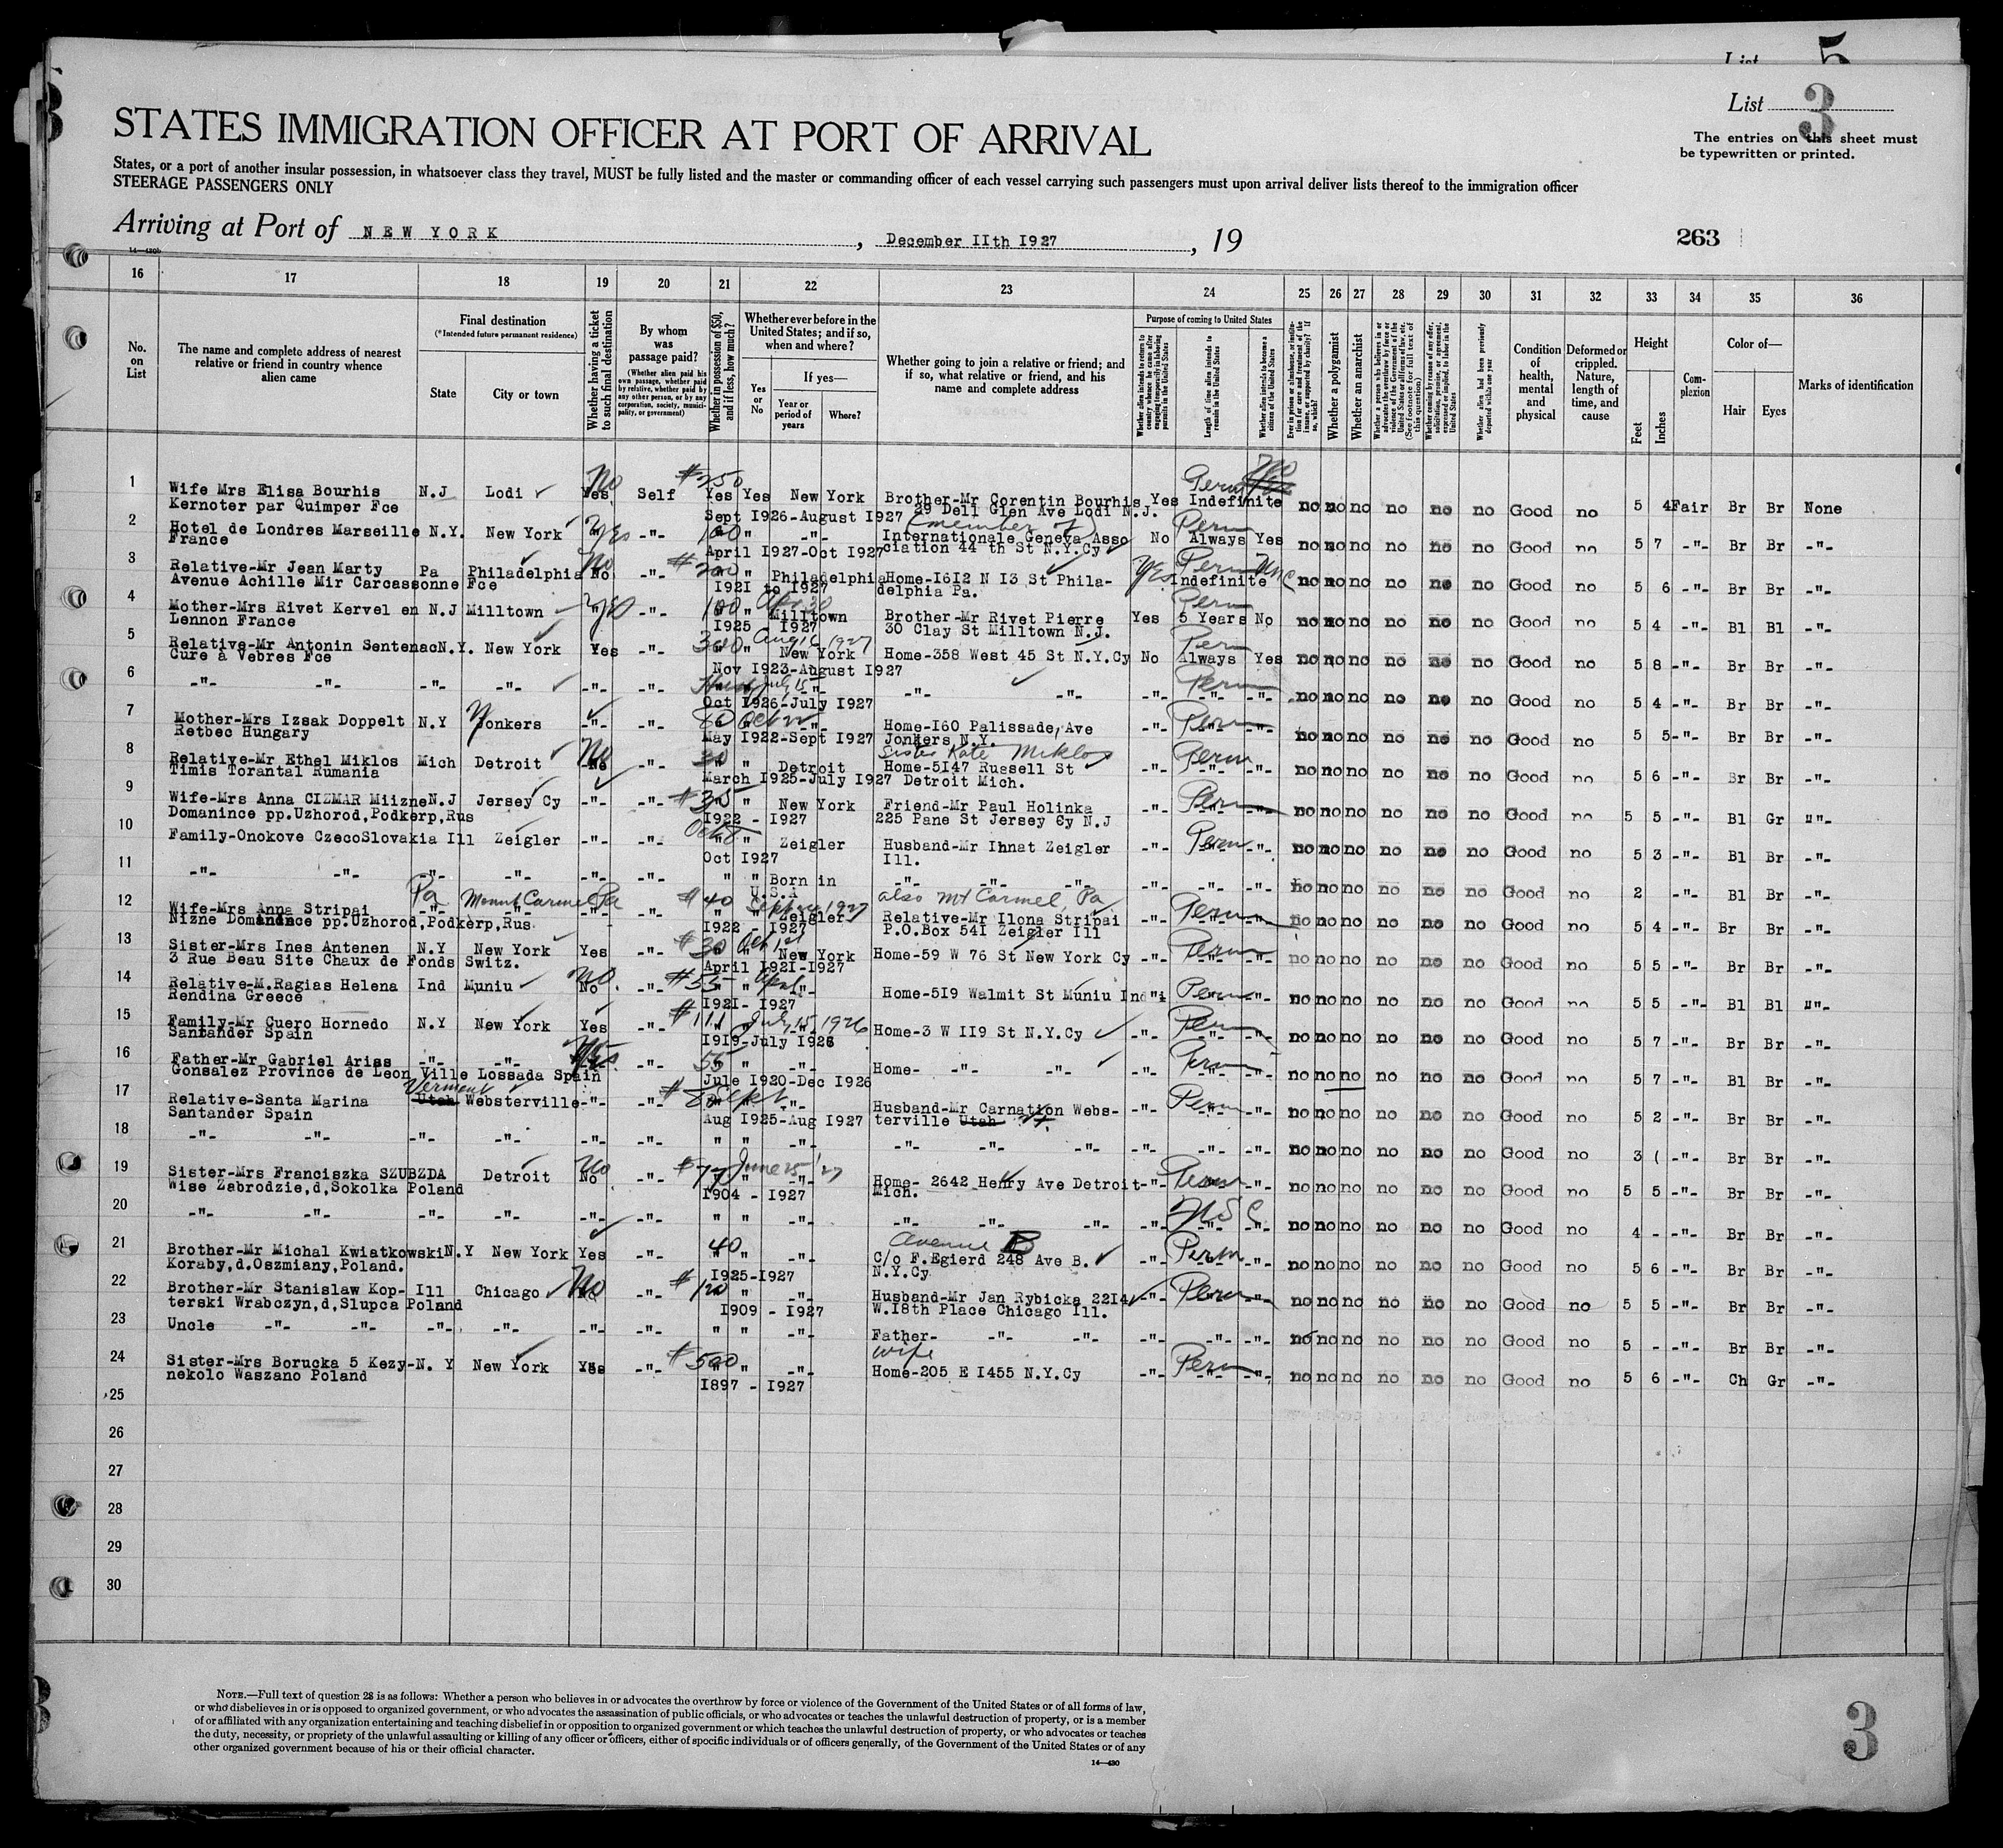 List 5
List 3
STATES IMMIGRATION OFFICER AT PORT OF ARRIVAL
The entries on this sheet must
be typewritten or printed.
States, or a port of another insular possession, in whatsoever class they travel, MUST be fully listed and the master or commanding officer of each vessel carrying such passengers must upon arrival deliver lists thereof to the immigration officer
STEERAGE PASSENGERS ONLY
Arriving at Port of NEW YORK, December IIth I927, 19
263
14—430b
16 17 18 19 20 21 22 23 24 25 26 27 28 29 30 31 32 33 34 35 36
No. on List
The name and complete address of nearest relative or friend in country whence alien came
Final destination
(*Intended future permanent residence)
State
City or town
Whether having a ticket to such final destination
By whom was passage paid?
(Whether alien paid his own passage, whether paid by relative, whether paid by any other person, or by any corporation, society, municipality, or government)
Whether in possession of $50, and if less, how much?
Whether ever before in the United States; and if so, when and where?
Yes or No
If yes—
Year or period of years
Where?
Whether going to join a relative or friend; and if so, what relative or friend, and his name and complete address
Purpose of coming to United States
Whether alien intends to return to country whence he came after engaging temporarily in laboring pursuits in the United States
Length of time alien intends to remain in the United States
Whether alien intends to become a citizen of the United States
Ever in prison or almshouse, or institution for care and treatment of the insane, or supported by charity? If so, which?
Whether a polygamist
Whether an anarchist
Whether coming by reason of any offer, solicitation, promise, or agreement, expressed or implied, to labor in the United States
Whether alien had been previously deported within one year
Condition of health, mental and physical
Deformed or crippled. Nature, length of time, and cause
Height
Feet
Inches
Complexion
Color of—
Hair
Eyes
Marks of identification
No #250 Perm
1 Wife Mrs Elisa Bourhis N.J Lodi Yes Self Yes Yes New York Brother-Mr Corentin Bourhis Yes Indefinite no no no no no no Good no 5 4 Fair Br Br None
Kernoter par Quimper Fce Sept I926-August I927 29 Dell Glen Ave Lodi N.J.
2 Hotel de Londres Marseille N.Y. New York Yes -"- 100 " -"- (member of) Internationale Geneva Asso No Perm Always Yes no no no no no no Good no 5 7 -"- Br Br -"-
France April I927-Oct I927 ciation 44 th St N.Y.Cy
3 Relative-Mr Jean Marty Pa Philadelphia No -"- #200 " Philadelphia Home-I6I2 N I3 St Phila- Yes Perm Indefinite no no no no no no Good no 5 6 -"- Br Br -"-
Avenue Achille Mir Carcassonne Fce I92I to I927 delphia Pa.
4 Mother-Mrs Rivet Kervel en N.J Milltown Yes -"- 100 " Milltown Brother-Mr Rivet Pierre Yes Perm 5 Years No no no no no no no Good no 5 4 -"- Bl Bl -"-
Lennon France I925 I927 30 Clay St Milltown N.J.
5 Relative-Mr Antonin Sentenac N.Y. New York Yes -"- 300 " Aug 16 1927 New York Home-358 West 45 St N.Y.Cy No Perm Always Yes no no no no no no Good no 5 8 -"- Br Br -"-
Cure à Vebres Fce Nov I923-August I927
6 -"- -"- -"- -"- -"- -"- July 15 -"- -"- -"- -"- Perm -"- -"- no no no no no no Good no 5 4 -"- Br Br -"-
Oct I926-July I927
7 Mother-Mrs Izsak Doppelt N.Y Yonkers -"- -"- 80 -"- Home-I60 Palissade, Ave -"- Perm -"- no no no no no no Good no 5 5 -"- Br Br -"-
Retbec Hungary May I922-Sept I927 Jonkers N.Y.
Sister Kate Miklos
8 Relative-Mr Ethel Miklos Mich Detroit No -"- 30 " Detroit Home-5I47 Russell St -"- Perm -"- no no no no no no Good no 5 6 -"- Br Br -"-
Timis Torantal Rumania March I925-July I927 Detroit Mich.
9 Wife-Mrs Anna CIZMAR Miizne N.J Jersey Cy -"- -"- #35 " New York Friend-Mr Paul Holinka -"- Perm -"- no no no no no no Good no 5 5 -"- Bl Gr "-
Domanince pp.Uzhorod,Podkerp,Rus I922 - I927 225 Pane St Jersey Cy N.J
10 Family-Onokove CzecoSlovakia Ill Zeigler -"- -"- " " Zeigler Husband-Mr Ihnat Zeigler -"- Perm -"- no no no no no no Good no 5 3 -"- Bl Br -"-
Oct I927 Ill.
11 -"- -"- -"- -"- -"- -"- " " Born in U.S.A -"- -"- -"- -"- -"- -"- no no no no no no Good no 2 -"- Bl Br -"-
Pa Mount Carmel Pa also Mt Carmel, Pa
12 Wife-Mrs Anna Stripai -"- -"- -"- -"- #40 " " Zeigler Relative-Mr Ilona Stripai -"- Perm -"- no no no no no no Good no 5 4 -"- Br Br -"-
Nizne Domanince pp.Uzhorod,Podkerp,Rus I922 - I927 P.O.Box 54I Zeigler Ill
13 Sister-Mrs Ines Antenen N.Y New York Yes -"- #30 Oct 1st New York Home-59 W 76 St New York Cy -"- Perm -"- no no no no no no Good no 5 5 -"- Br Br -"-
3 Rue Beau Site Chaux de Fonds Switz. April I92I-I927
14 Relative-M.Ragias Helena Ind Muniu No -"- #55 " " -"- Home-5I9 Walmit St Muniu Ind -"- Perm -"- no no no no no no Good no 5 5 -"- Bl Bl "-
Rendina Greece I92I- I927
15 Family-Mr Cuero Hornedo N.Y New York Yes -"- #111 July 15, 1926 Home-3 W II9 St N.Y.Cy -"- Perm -"- no no no no no no Good no 5 7 -"- Br Br -"-
Santander Spain I9I9-July I926
16 Father-Mr Gabriel Arias -"- -"- Yes -"- 55 " -"- Home- -"- -"- -"- Perm -"- no no no no no no Good no 5 7 -"- Bl Br -"-
Gonsalez Province de Leon Ville Lossada Spain Jule I920-Dec I926
Vermont
17 Relative-Santa Marina Utah Websterville -"- -"- Sept -"- Husband-Mr Carnation Webs- -"- Perm -"- no no no no no no Good no 5 2 -"- Br Br -"-
Santander Spain Aug I925-Aug I927 terville Utah Vt.
18 -"- -"- -"- -"- -"- -"- " " -"- -"- -"- -"- -"- -"- -"- no no no no no no Good no 3 ( -"- Br Br -"-
19 Sister-Mrs Franciszka SZUBZDA Detroit No -"- June 25 '27 -"- Home- 2642 Henry Ave Detroit -"- Perm -"- no no no no no no Good no 5 5 -"- Br Br -"-
Wise Zabrodzie,d,Sokolka Poland I904 - I927 Mich.
20 -"- -"- -"- -"- -"- -"- " " -"- -"- -"- -"- -"- USC -"- no no no no no no Good no 4 - -"- Br Br -"-
Avenue B
21 Brother-Mr Michal Kwiatkowski N.Y New York Yes -"- 40 " -"- C/o F.Egierd 248 Ave B. -"- Perm -"- no no no no no no Good no 5 6 -"- Br Br -"-
Koraby,d.Oszmiany,Poland. I925-I927 N.Y.Cy
22 Brother-Mr Stanislaw Kop- Ill Chicago No -"- #120 " -"- Husband-Mr Jan Rybicka 22I4 -"- Perm -"- no no no no no no Good no 5 5 -"- Br Br -"-
terski Wrabczyn,d,Slupca Poland I909 - I927 W.I8th Place Chicago Ill.
23 Uncle -"- -"- -"- -"- -"- -"- " " -"- Father- -"- -"- -"- -"- -"- no no no no no no Good no 5 - -"- Br Br -"-
wife
24 Sister-Mrs Borucka 5 Kezy- N. Y New York Yes -"- #500 " -"- Home-205 E I455 N.Y.Cy -"- Perm -"- no no no no no no Good no 5 6 -"- Ch Gr -"-
nekolo Waszano Poland I897 - I927
25
26
27
28
29
30
NOTE.—Full text of question 28 is as follows: Whether a person who believes in or advocates the overthrow by force or violence of the Government of the United States or of all forms of law,
or who disbelieves in or is opposed to organized government, or who advocates the assassination of public officials, or who advocates or teaches the unlawful destruction of property, or is a member
of or affiliated with any organization entertaining and teaching disbelief in or opposition to organized government or which teaches the unlawful destruction of property, or who advocates or teaches
the duty, necessity, or propriety of the unlawful assaulting or killing of any officer or officers, either of specific individuals or of officers generally, of the Government of the United States or of any
other organized government because of his or their official character.
14—430
3